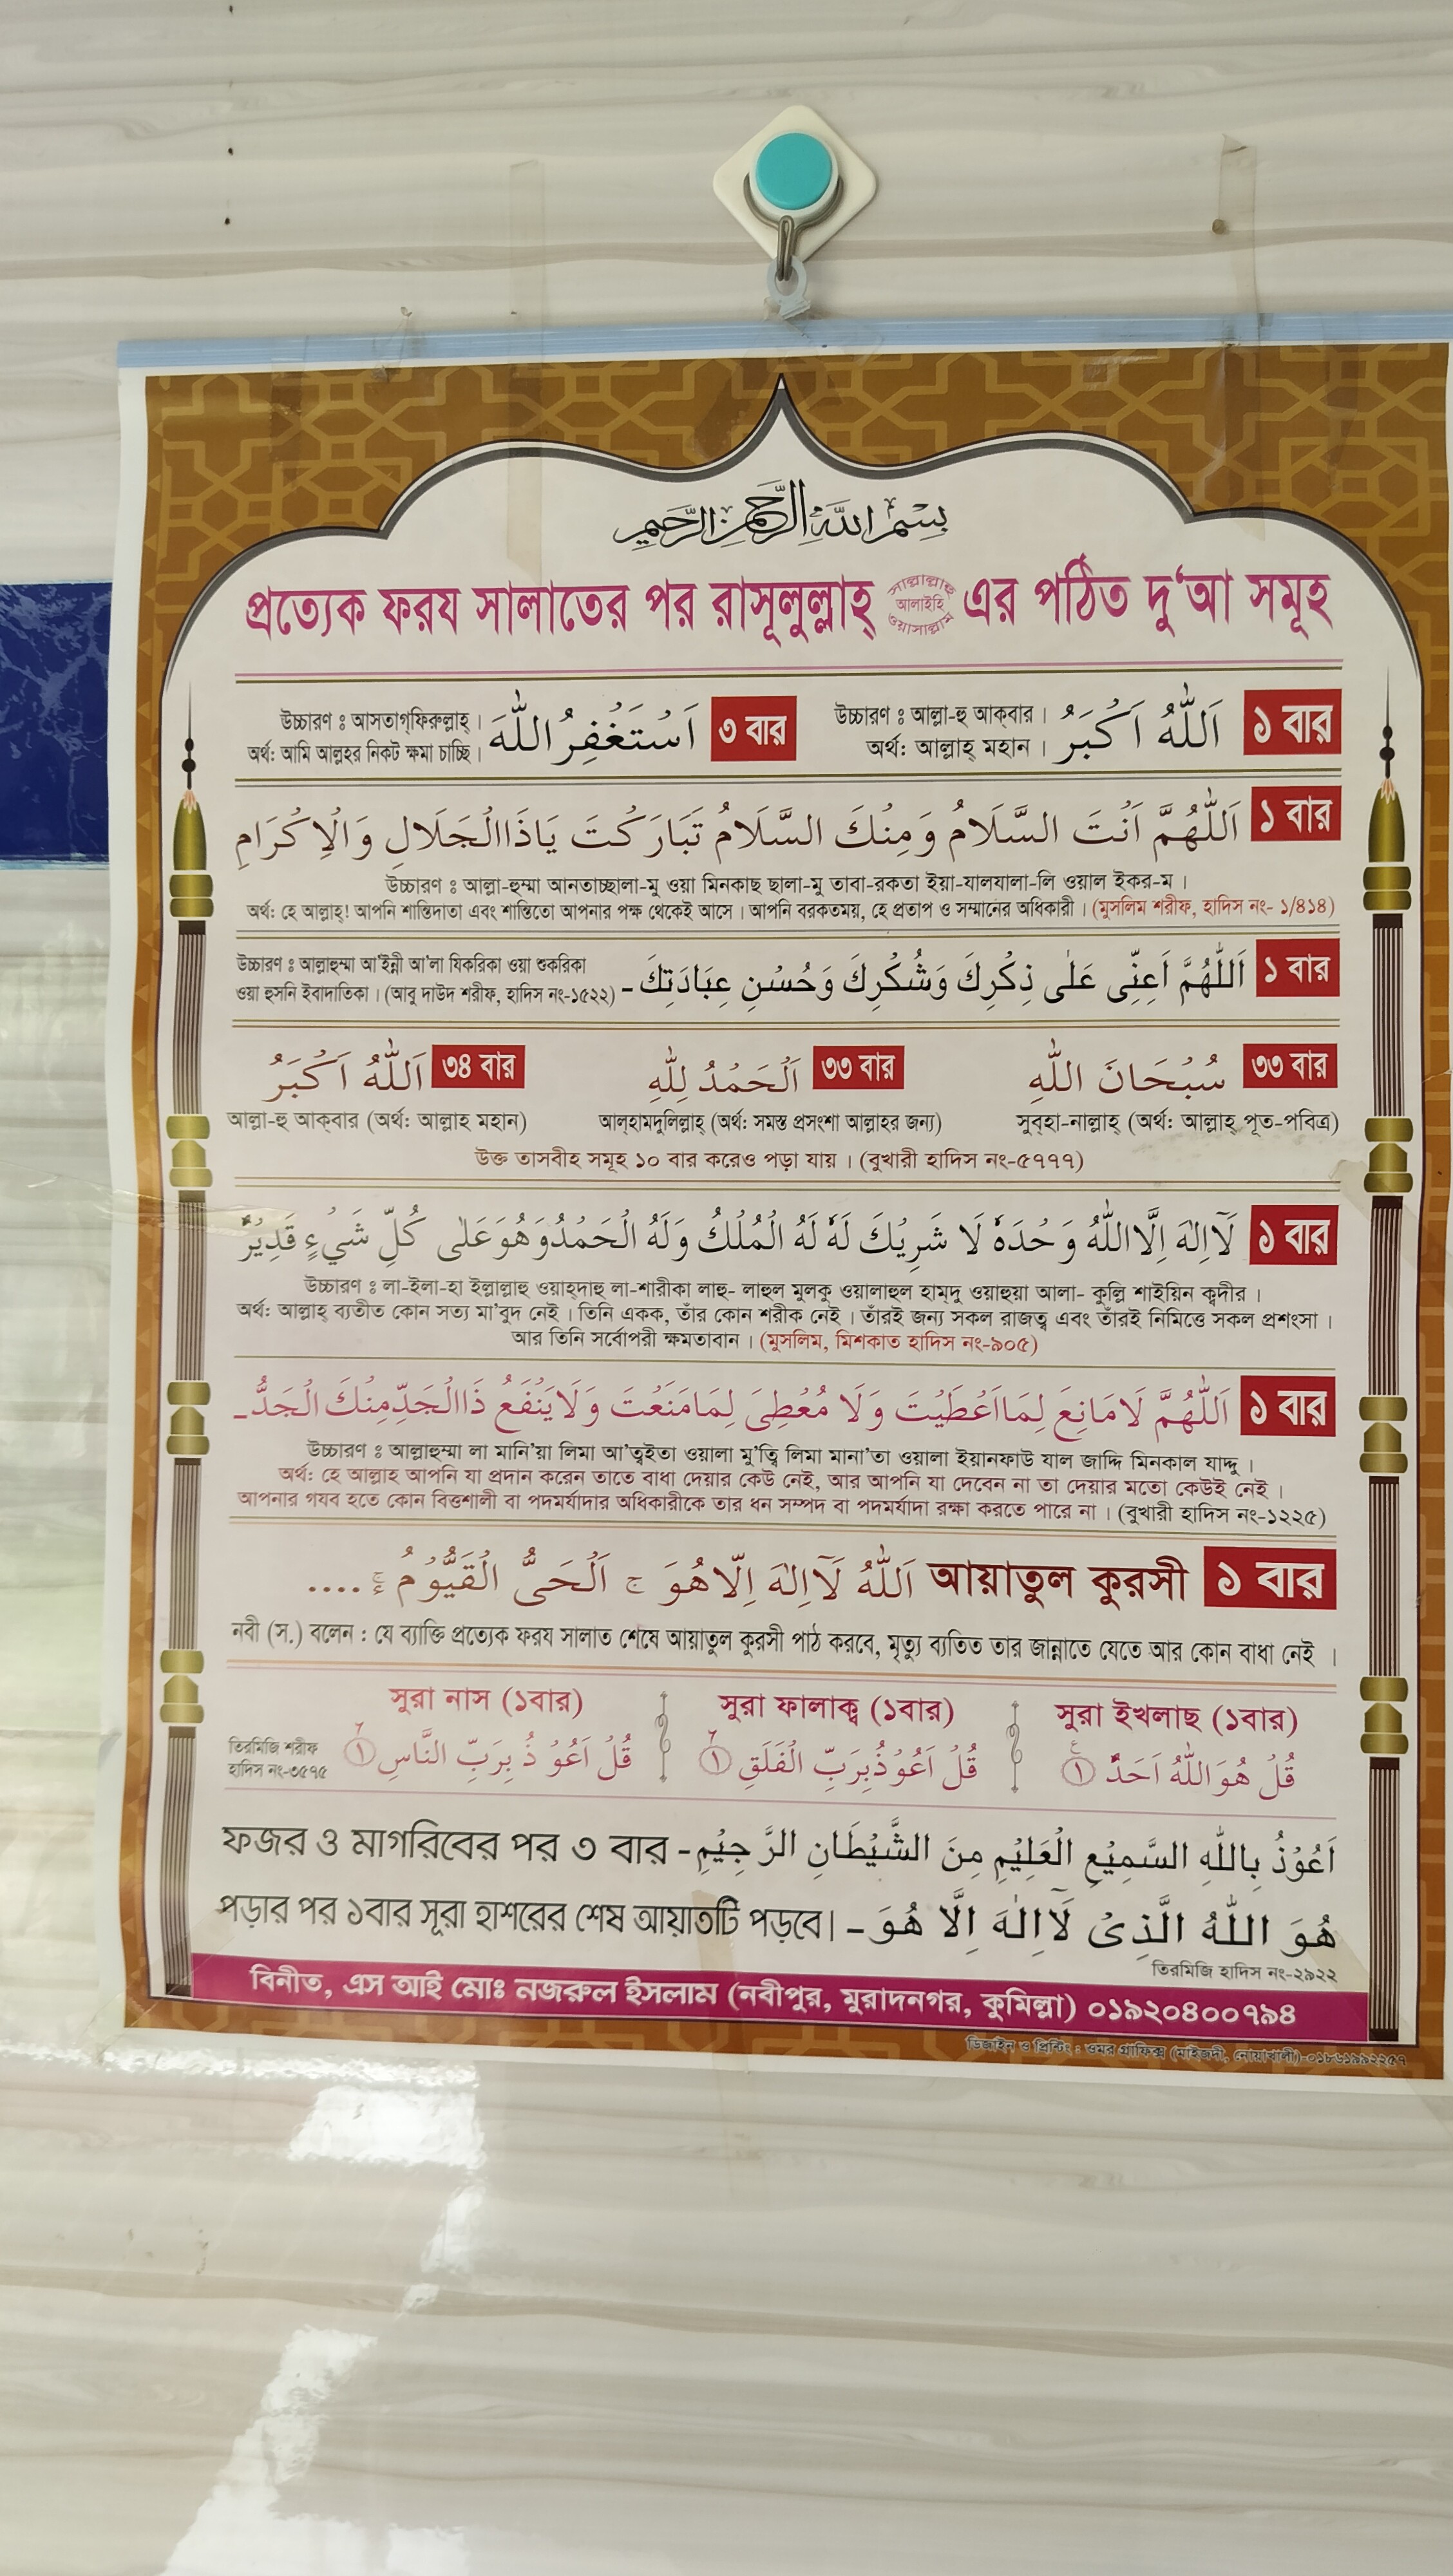 بِسْمِ اللهِ الرَّحْمٰنِ الرَّحِيْمِ
প্রত্যেক ফরয সালাতের পর রাসূলুল্লাহ্ সাল্লাল্লাহু আলাইহি ওয়াসাল্লাম এর পঠিত দু‘আ সমূহ
১ বার
اَللّٰهُ اَكْبَرُ
উচ্চারণ ঃ আল্লা-হু আক্‌বার।
অর্থ: আল্লাহ্ মহান।
৩ বার
اَسْتَغْفِرُ اللّٰهَ
উচ্চারণ ঃ আসতাগ্‌ফিরুল্লাহ্।
অর্থ: আমি আল্লহর নিকট ক্ষমা চাচ্ছি।
১ বার
اَللّٰهُمَّ اَنْتَ السَّلَامُ وَمِنْكَ السَّلَامُ تَبَارَكْتَ يَاذَاالْجَلَالِ وَالْاِكْرَامِ
উচ্চারণ ঃ আল্লা-হুম্মা আনতাচ্ছালা-মু ওয়া মিনকাছ ছালা-মু তাবা-রকতা ইয়া-যালযালা-লি ওয়াল ইকর-ম।
অর্থ: হে আল্লাহ্! আপনি শান্তিদাতা এবং শান্তিতো আপনার পক্ষ থেকেই আসে। আপনি বরকতময়, হে প্রতাপ ও সম্মানের অধিকারী। (মুসলিম শরীফ, হাদিস নং- ১/৪১৪)
১ বার
اَللّٰهُمَّ اَعِنِّى عَلٰى ذِكْرِكَ وَشُكْرِكَ وَحُسْنِ عِبَادَتِكَ -
উচ্চারণ ঃ আল্লাহুম্মা আ'ইন্নী আ'লা যিকরিকা ওয়া শুকরিকা
ওয়া হুসনি ইবাদাতিকা। (আবু দাউদ শরীফ, হাদিস নং-১৫২২)
৩৩ বার
سُبْحَانَ اللّٰهِ
সুব্‌হা-নাল্লাহ্ (অর্থ: আল্লাহ্ পূত-পবিত্র)
৩৩ বার
اَلْحَمْدُ لِلّٰهِ
আল্‌হামদুলিল্লাহ্ (অর্থ: সমস্ত প্রসংশা আল্লাহর জন্য)
৩৪ বার
اَللّٰهُ اَكْبَرُ
আল্লা-হু আক্‌বার (অর্থ: আল্লাহ মহান)
উক্ত তাসবীহ সমূহ ১০ বার করেও পড়া যায়। (বুখারী হাদিস নং-৫৭৭৭)
১ বার
لَآاِلٰهَ اِلَّااللّٰهُ وَحْدَهٗ لَا شَرِيْكَ لَهٗ لَهُ الْمُلْكُ وَلَهُ الْحَمْدُوَهُوَعَلٰى كُلِّ شَيْءٍ قَدِيْرٌ
উচ্চারণ ঃ লা-ইলা-হা ইল্লাল্লাহু ওয়াহ্‌দাহু লা-শারীকা লাহু- লাহুল মুলকু ওয়ালাহুল হাম্‌দু ওয়াহুয়া আলা- কুল্লি শাইয়িন ক্বদীর।
অর্থ: আল্লাহ্ ব্যতীত কোন সত্য মা'বুদ নেই। তিনি একক, তাঁর কোন শরীক নেই। তাঁরই জন্য সকল রাজত্ব এবং তাঁরই নিমিত্তে সকল প্রশংসা।
আর তিনি সর্বোপরী ক্ষমতাবান। (মুসলিম, মিশকাত হাদিস নং-৯০৫)
১ বার
اَللّٰهُمَّ لَامَانِعَ لِمَااَعْطَيْتَ وَلَا مُعْطِىَ لِمَامَنَعْتَ وَلَايَنْفَعُ ذَاالْجَدِّمِنْكَ الْجَدُّ-
উচ্চারণ ঃ আল্লাহুম্মা লা মানি'য়া লিমা আ'ত্বইতা ওয়ালা মু'ত্বি লিমা মানা'তা ওয়ালা ইয়ানফাউ যাল জাদ্দি মিনকাল যাদ্দু।
অর্থ: হে আল্লাহ আপনি যা প্রদান করেন তাতে বাধা দেয়ার কেউ নেই, আর আপনি যা দেবেন না তা দেয়ার মতো কেউই নেই।
আপনার গযব হতে কোন বিত্তশালী বা পদমর্যাদার অধিকারীকে তার ধন সম্পদ বা পদমর্যাদা রক্ষা করতে পারে না। (বুখারী হাদিস নং-১২২৫)
১ বার
আয়াতুল কুরসী اَللّٰهُ لَآاِلٰهَ اِلَّاهُوَ ج اَلْحَىُّ الْقَيُّوْمُ ....
নবী (স.) বলেন : যে ব্যাক্তি প্রত্যেক ফরয সালাত শেষে আয়াতুল কুরসী পাঠ করবে, মৃত্যু ব্যতিত তার জান্নাতে যেতে আর কোন বাধা নেই।
সুরা ইখলাছ (১বার)
قُلْ هُوَاللّٰهُ اَحَدٌ ١
সুরা ফালাক্ব (১বার)
قُلْ اَعُوْذُبِرَبِّ الْفَلَقِ ١
সুরা নাস (১বার)
قُلْ اَعُوْذُ بِرَبِّ النَّاسِ ١
তিরমিজি শরীফ
হাদিস নং-৩৫৭৫
ফজর ও মাগরিবের পর ৩ বার - اَعُوْذُ بِاللّٰهِ السَّمِيْعِ الْعَلِيْمِ مِنَ الشَّيْطَانِ الرَّجِيْمِ
পড়ার পর ১বার সূরা হাশরের শেষ আয়াতটি পড়বে। - هُوَ اللّٰهُ الَّذِىْ لَآاِلٰهَ اِلَّا هُوَ
তিরমিজি হাদিস নং-২৯২২
বিনীত, এস আই মোঃ নজরুল ইসলাম (নবীপুর, মুরাদনগর, কুমিল্লা) ০১৯২০৪০০৭৯৪
ডিজাইন ও প্রিন্টিং : ওমর গ্রাফিক্স (মাইজদী, নোয়াখালী)-০১৮৬১৯৯২২৫৭